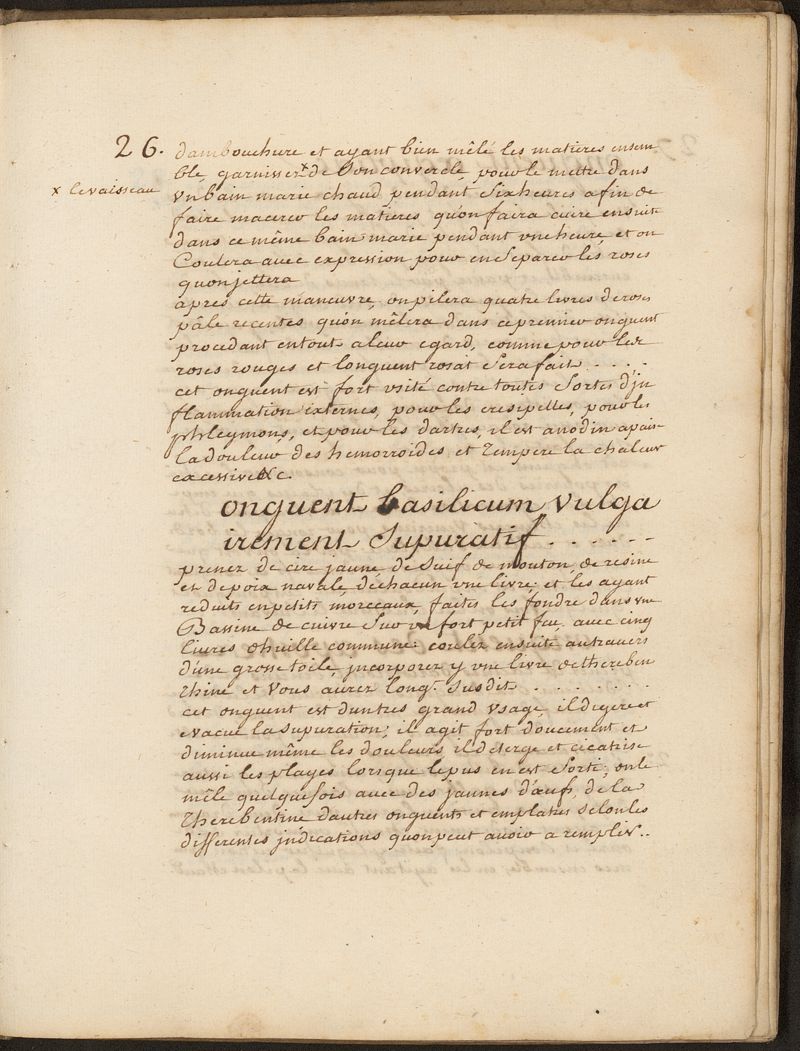 26. dambouchure et ayant bien mêlé les matieres ensem
ble, garnisser x de son convercle, pour le metre dans
x le vaisseau
vn bain marie chaud pendant Six heures afin de
faire macerer les matieres qu'on faira cuire ensuite
dans ce même bain marie pendant vne heure, et on
Coulera avec expression pour en Separer les roses
quon jettera
apres cette maneuvre, on pilera quatre livres de roses
pâle recentes qu'on mêlera dans ce premier onguent
procedant en tout a leur egard, comme pour les
roses rouges et l'onguent rosat Sera fait . . . . .
cet onguent est fort vsité contre toutes Sortes d'in
flammation externes, pour les eresipelles, pour les
phleymons, et pour les dartres, il est anodin apaise
la douleur des hemorroides et tempere la chaleur
excessive &c.
onguent basilicum vulga
irement Supuratif . . . . . .
prenez de cire jaune de Suif de mouton, de resine
et de poix navale, de chacun vne livre; et les ayant
reduits en petits morceaux, faites les fondre dans vne
Bassine de cuivre Sur vn fort petit feu. avec cinq
livres d'huille commune: coulez ensuite autravers
d'une grosse toile, jncorporez y vne livre de thereben
thine et vous aurez l'ong.t Susdit . . . . . . . .
cet onguent est d'un tres grand vsage, il digere et
evacue la supuration; il agit fort doucement et
diminue même les douleurs, il deterge et cicatrise
aussi les playes lorsque le pus en est Sorti; on le
mêle quelquefois avec des jaunes d'œufs, de la
therebentine d'autres onguents et emplatres selon les
differentes jndications quon peut avoir a remplir..